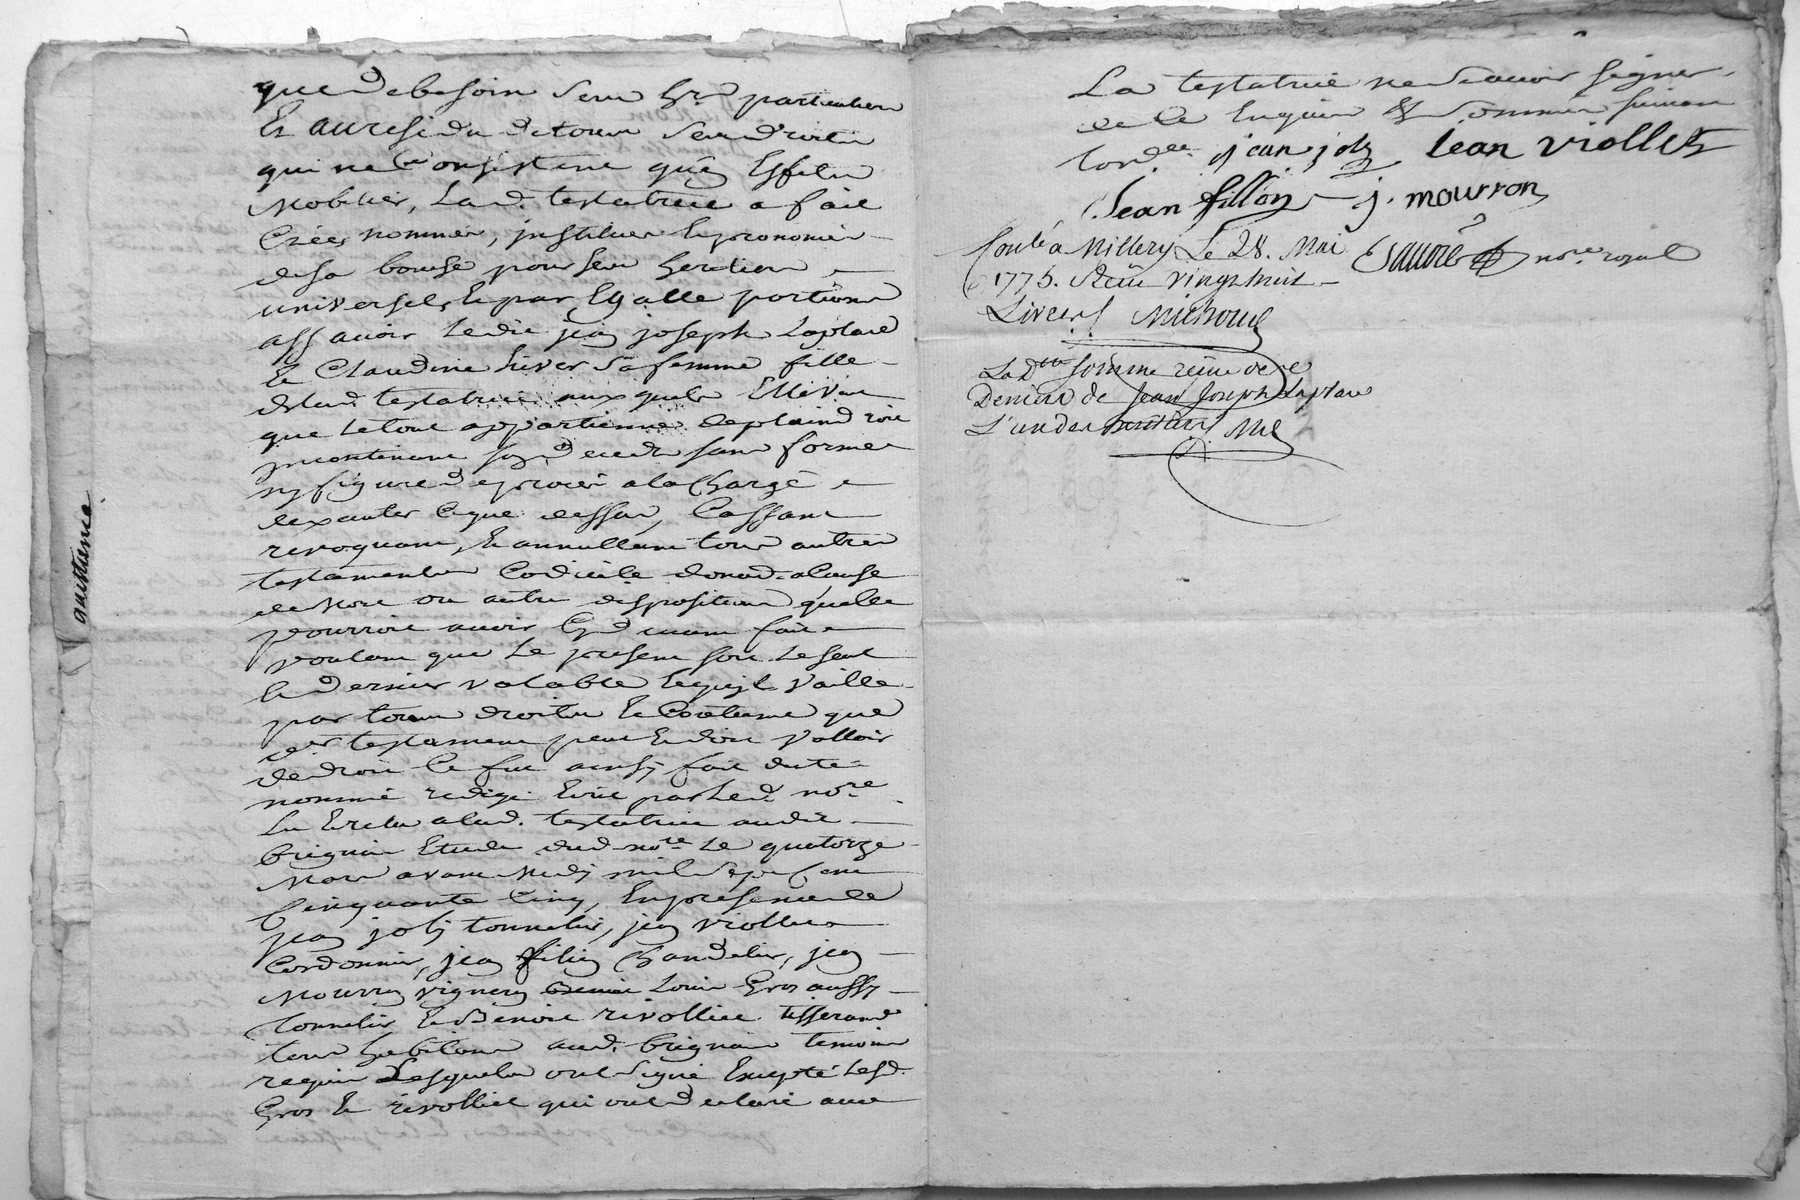 que de besoin seur h.rs particuliers
Et au residu de tous ses droits
qui ne Consistent qu'en Effets
Mobilier, Lad. testatrice a fait
Créer nommér, jnstituer Et prononcér
de sa bouche pour ses heritiers
universels, Et par Egalle portions
assavoir Ledit jean joseph Laplace
Et Claudine hiver sa femme fille
de lad. testatrice auxquels Elle veut
que Letout appartienne de plain droit
jncontinent son deceds sans forme
ny figure de procés a la Charge
dexecuter Ceque dessus, Cassant
revoquant, Et annullant tous autres
testaments Codicile donaõn acause
de Mort ou autre disposition quelle
pourroit avoir Cy devant fait
voulant que Le present soit Leseul
Et dernier valable Et quil vaille
par tous droits Et Coutume que
testament peut Et doit valloir
de droit Ce fut ainsy fait dicté
nommé redigé Ecrit par Led. no.re
Lu Et relu alad. testatrice audit
brignais Etude dud. no.re Le quatorze
Mars avant Midy mil Sept Cent
Cinquante Cinq, En presence de
jean joly tonnelier, jean viollet
Cordonnier, jean filion Chandelier, jean
Mourron vigneron Louis Gros aussy
tonnelier Et Benoit rivollier tisserand
tous habitans aud. brignais temoins
requis Lesquels ont signé Excepté Lesd.
Gros Et rivollier qui ont declaré avec
La testatrice ne scavoir signer
de Ce Enquis Et Sommés suivant
Lord.ce jean joly Jean viollet
Jean fillon j. mourron
Conlé a Millery Le 28. Mai no.re royal
1775. Reçu vingt huit
Livres
La D.tte somme reçue de
Deniers de Jean Joseph Laplace
L'un des